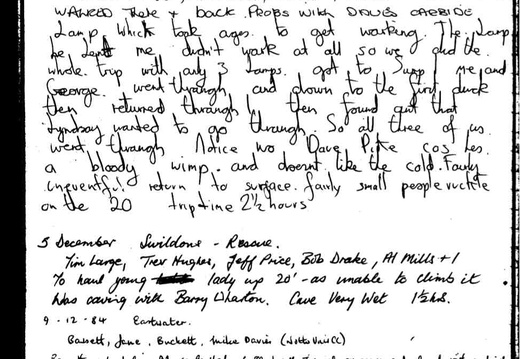 WANTED There & back. Props with DAVES CARBIDE
Lamp which took ages to get working. The Lamp
he lent me didn't work at all so we did the
whole trip with only 3 lamps. got to Sump 1 me and
George went through and down to the first duck
then returned through 1 then found out that
Lyndsay wanted to go through. So all three of us
went through Notice no Dave Pike cos hes
a bloody wimp. and doesnt like the cold. Fairly
uneventful return to surface. fairly small people ruckle
on the 20 trip time 2½ hours
5 December Swildons - Rescue.
Tim Large, Trev Hughes, Jeff Price, Bob Drake, Al Mills + 1
To haul young lady up 20' - as unable to climb it
Was caving with Barry Wharton. Cave Very Wet 1½ hrs.
9 - 12 - 84 Eastwater.
Bassett, Jane, Buckett, Mike Davis (Notts Uni CC)